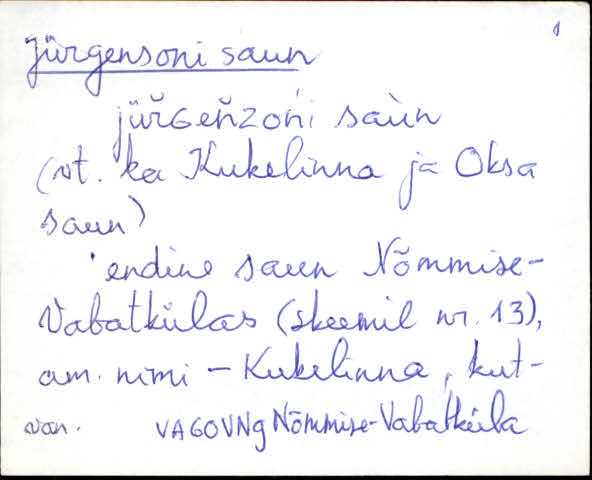 1
Jürgensoni saun
jür̆Gen̆zońi saùn
(vt. ka Kukelinna ja Oksa
saun)
'endine saun Nõmmise-
Vabatkülas (skeemil nr. 13),
am. nimi - Kukelinna, kut-
van. VAGOVNg Nõmmise-Vabatküla